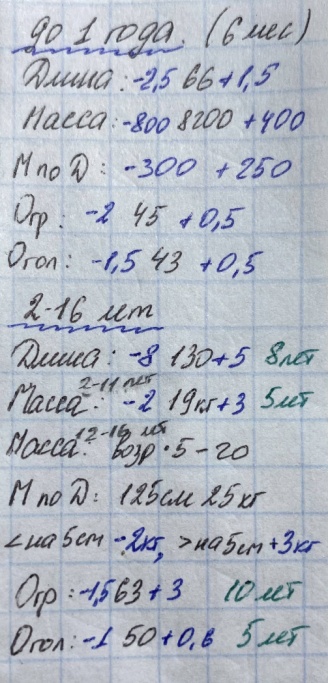 до 1 года. (6 мес)
Длина: -2,5 66 +1,5
Масса: -800 8200 +400
М по Д: -300 +250
Огр: -2 45 +0,5
Огол: -1,5 43 +0,5
2-16 лет
Длина: -8 130 +5 8 лет
Масса 2-11 лет: -2 19 кг +3 5 лет
Масса 12-16 лет: возр · 5 - 20
М по Д: 125 см 25 кг
< на 5 см -2 кг, > на 5 см +3 кг
Огр: -1,5 63 +3 10 лет
Огол: -1 50 +0,6 5 лет